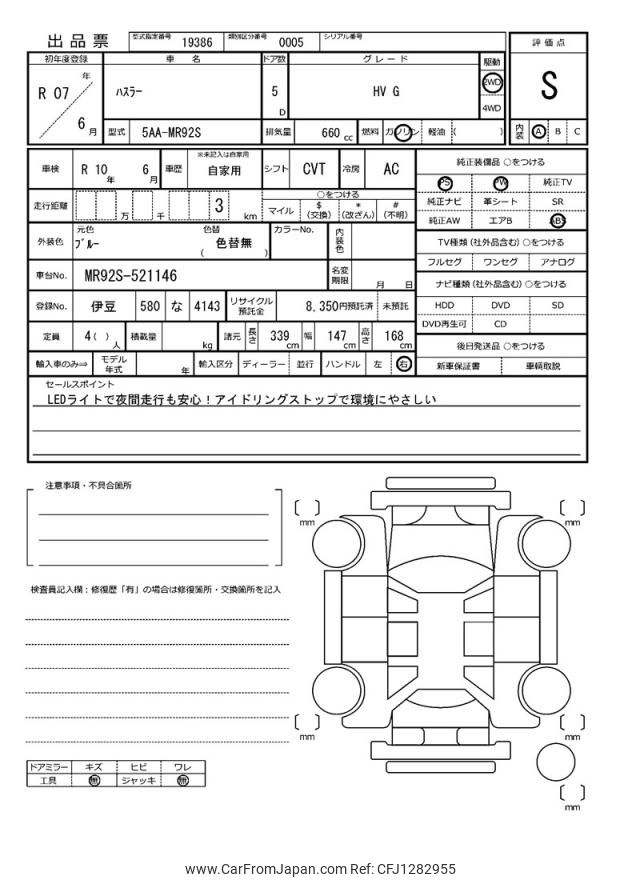 出品票
型式指定番号 19386 類別区分番号 0005 シリアル番号
初年度登録 車名 ドア数 グレード 駆動
評価点
R 07 年 6 月
ハスラー
5 D
HV G
2WD
4WD
S
型式 5AA-MR92S 排気量 660 cc 燃料 ガソリン 軽油 ( )
内装 A B C
車検 R 10 年 6 月 車歴 ※未記入は自家用 自家用 シフト CVT 冷房 AC
走行距離 万 千 3 km
○をつける
マイル $ (交換) * (改ざん) # (不明)
外装色 元色 ブルー 色替 色替無 ( ) カラーNo. 内装色
車台No. MR92S-521146 名変期限 月 日
登録No. 伊豆 580 な 4143 リサイクル預託金 8,350円預託済 未預託
定員 4( ) 人 積載量 kg 諸元 長さ 339 cm 幅 147 cm 高さ 168 cm
輸入車のみ⇒ モデル年式 年 輸入区分 ディーラー 並行 ハンドル 左 右
純正装備品 ○をつける
PS PW 純正TV
純正ナビ 革シート SR
純正AW エアB ABS
TV種類 (社外品含む) ○をつける
フルセグ ワンセグ アナログ
ナビ種類 (社外品含む) ○をつける
HDD DVD SD
DVD再生可 CD
後日発送品 ○をつける
新車保証書 車輌取説
セールスポイント
LEDライトで夜間走行も安心！アイドリングストップで環境にやさしい
注意事項・不具合箇所
検査員記入欄：修復歴「有」の場合は修復箇所・交換箇所を記入
[ ] mm
[ ] mm
[ ] mm
[ ] mm
[ ] mm
ドアミラー キズ ヒビ ワレ
工具 無 ジャッキ 無
www.CarFromJapan.com Ref: CFJ1282955